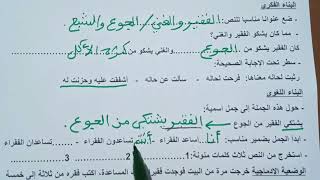 البناء الفكري
- ضع عنوانا مناسبا للنص: الفقير والغني / الجوع والشبع
كان الفقير يشكو من الجوع والغني يشكو من كثرة الأكل
- سطر تحت الإجابة الصحيحة:
رثيت لحاله معناها: فرحت لحاله - سألت عن حاله - أشفقت عليه وحزنت له
البناء اللغوي
- حول هذه الجملة الى جمل اسمية:
يشتكي الفقير من الجوع ← الفقير يشتكي من الجوع.
- ابدا الجمل بضمير مناسب: أنا أساعد الفقراء - أنتم تساعدون الفقراء تساعدان الفقراء
- استخرج من النص ثلاث كلمات منونة: 1 2 3
الوضعية الادماجية خرجت مرة من البيت فوجدت فقيرا وساعدته، اكتب فقره من ثلاثة إلى خمسة